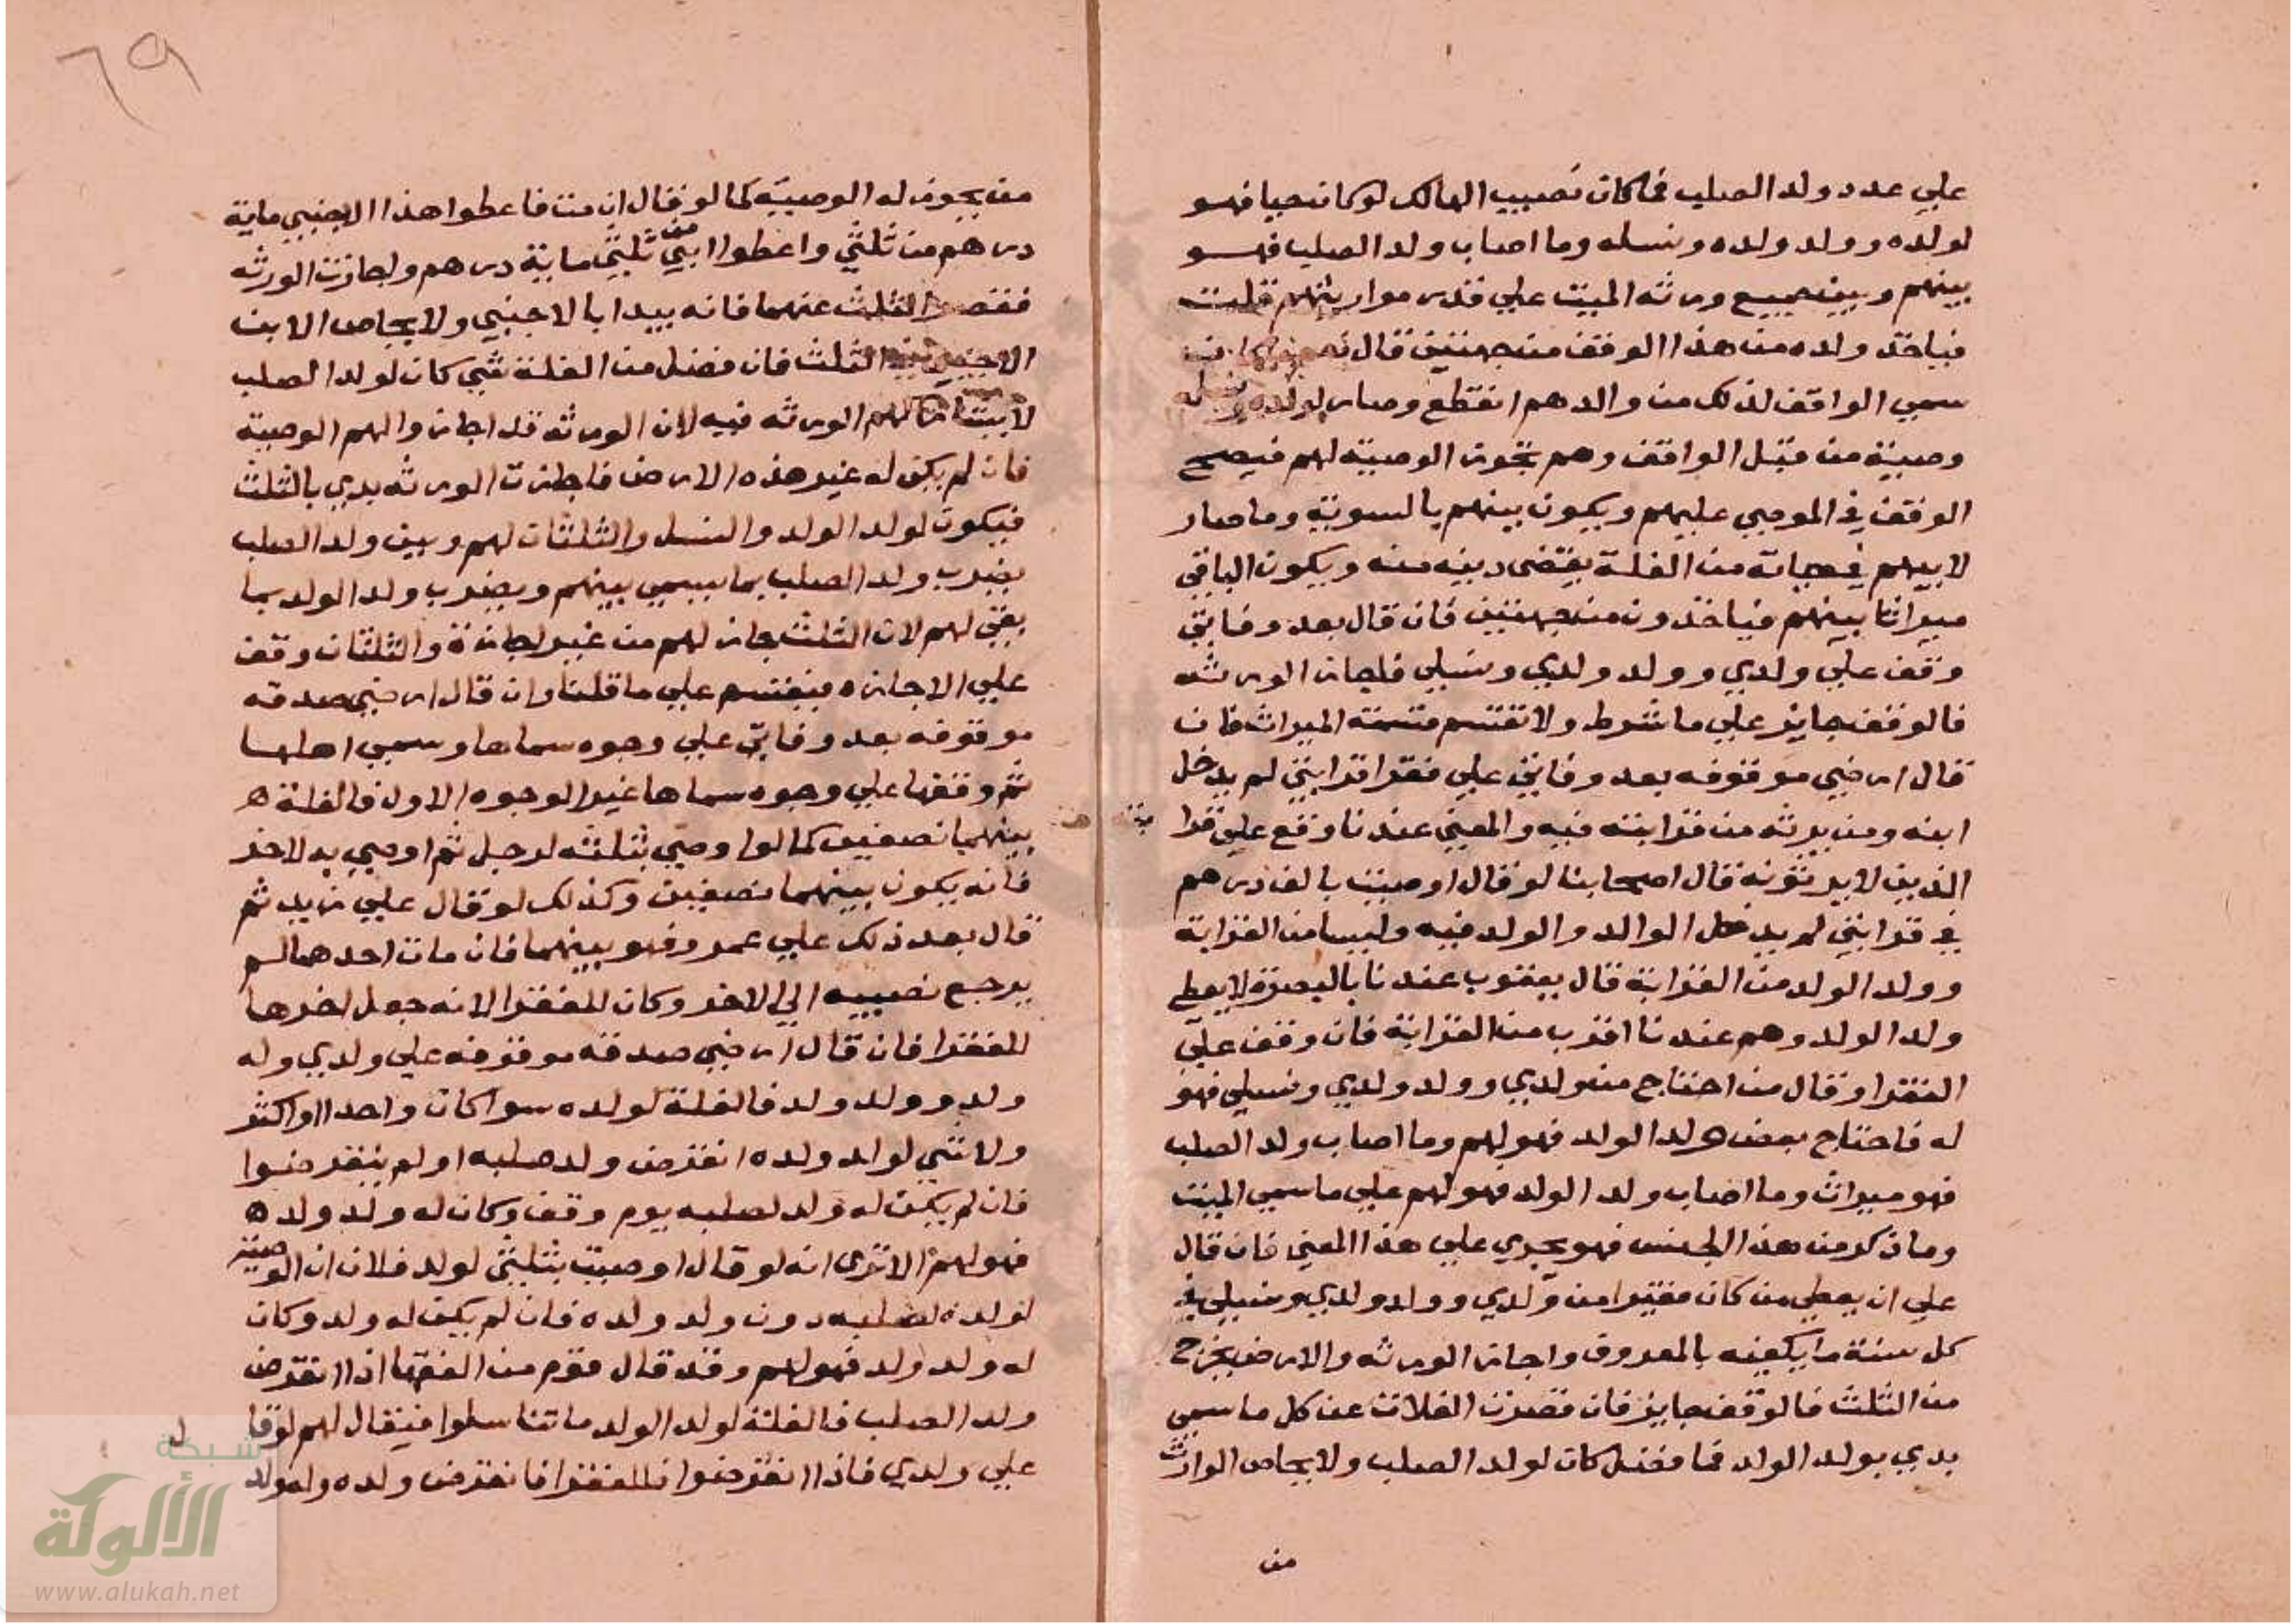 علي عدد ولد الصلب فما كان نصيب الهالك لو كان حيا فهو
لولده وولد ولده ونسله وما اصاب ولد الصلب فهو
بينهم وبين جميع ورثه الميت علي قدر مواريثهم قلت
فياخذ ولده من هذا الوقف من جهتين قال نعم
سمي الواقف لذلك من والدهم انقطع وصار لولده ونسله
وصية من قبل الواقف وهم تجوز الوصية لهم فيصح
الوقف في الموصي عليهم ويكون بينهم بالسوية وما صار
لابيهم في حياته من الغلة يقتضى دينه منه ويكون الباقي
ميراثا بينهم فياخذون من جهتين فان قال بعد وفاتي
وقف علي ولدي وولد ولدي ونسلي فاجاز الورثه
فالوقف جايز علي ما شرط ولا تقتسم قسمة الميراث فان
قال ارضي موقوفه بعد وفاتي علي فقرا قرابتي لم يدخل
ابنه ومن يرثه من قرابته فيه والمعني عندنا وقع علي قرا
الذين لا يرثونه قال اصحابنا لو قال اوصيت بالف درهم
في قرابتي لم يدخل الوالد والولد فيه وليسا من القرابة
وولد الولد من القرابة قال يعقوب عندنا بالبصرة لا يعطي
ولد الولد وهم عندنا اقرب من القرابة فان وقف علي
الفقرا وقال من احتاج من ولدي وولد ولدي ونسلي فهو
له فاحتاج بعض ولد الولد فهو لهم وما اصاب ولد الصلب
فهو ميراث وما اصاب ولد الولد فهو لهم علي ما سمي الميت
وما ذكر من هذا الجنس فهو يجري علي هذا المعني فان قال
علي ان يعطي من كان فقيرا من ولدي وولد ولدي ونسلي في
كل سنة ما يكفيه بالمعروف واجاز الورثه والارض يخرج
من الثلث فالوقف جايز فان قصرت الغلات عن كل ما سمي
بدي بولد الولد فما فضل كان لولد الصلب ولا يحاص الوارث
من
٦٩
من يجوز له الوصية كما لو قال ان مت فاعطوا هذا الاجنبي ماية
درهم من ثلثي واعطوا ابني من ثلثي ماية درهم واجازت الورثه
فقصر الثلث عنهما فانه يبدا بالاجنبي ولا يحاص الابن
الاجنبي الثلث فان فضل من الغلة شي كان لولد الصلب
الورثه فيه لان الورثه قد اجازوا لهم الوصية
فان لم يكن له غير هذه الارض فاجازت الورثه بدي بالثلث
فيكون لولد الولد والنسل والثلثان لهم وبين ولد الصلب
يضرب ولد الصلب بما يسمي بينهم ويضرب ولد الولد بما
بقي لهم لان الثلث جاز لهم من غير اجازة والثلثان وقف
علي الاجازه فيقتسم علي ما قلنا وان قال ارضي صدقه
موقوفه بعد وفاتي علي وجوه سماها وسمي اهلها
ثم وقفها علي وجوه سماها غير الوجوه الاول فالغلة
بينهما نصفين كما لو اوصي بثلثه لرجل ثم اوصي به لاخر
فانه يكون بينهما نصفين وكذلك لو قال علي زيد ثم
قال بعد ذلك علي عمرو فهو بينهما فان مات احدهما لم
يرجع نصيبه الي الاخر وكان للفقرا لانه جعل اخرها
للفقرا فان قال ارضي صدقه موقوفه علي ولدي وله
ولد وولد ولد فالغلة لولده سوا كان واحدا او اكثر
ولا شي لولد ولده انقرض ولد صلبه او لم ينقرضوا
فان لم يكن له ولد لصلبه يوم وقف وكان له ولد ولد
فهو لهم الا ترى انه لو قال اوصيت بثلثي لولد فلان ان الوصية
لولده لصلبه دون ولد ولده فان لم يكن له ولد وكان
له ولد ولد فهو لهم وقد قال قوم من الفقها اذا انقرض
ولد الصلب فالغلة لولد الولد ما تناسلوا فيقال لهم لو قال
علي ولدي فاذا انقرضوا فللفقرا فانقرض ولده وله ولد
شبكة
الألوكة
www.alukah.net